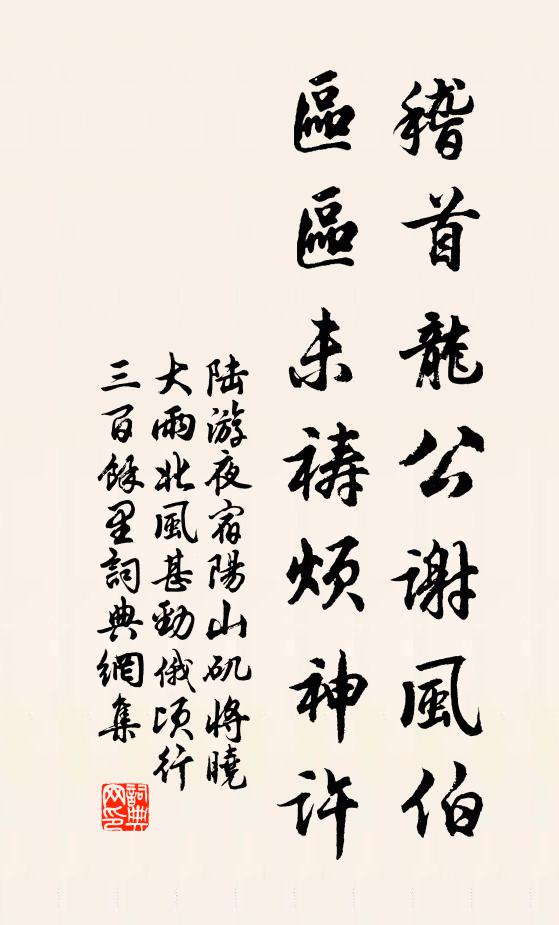 稽首龍公謝風伯
區區未禱煩神許
陆游夜宿陽山矶將曉
大雨北風甚勁俄頃行
三百餘里詞典網集
詞典网印